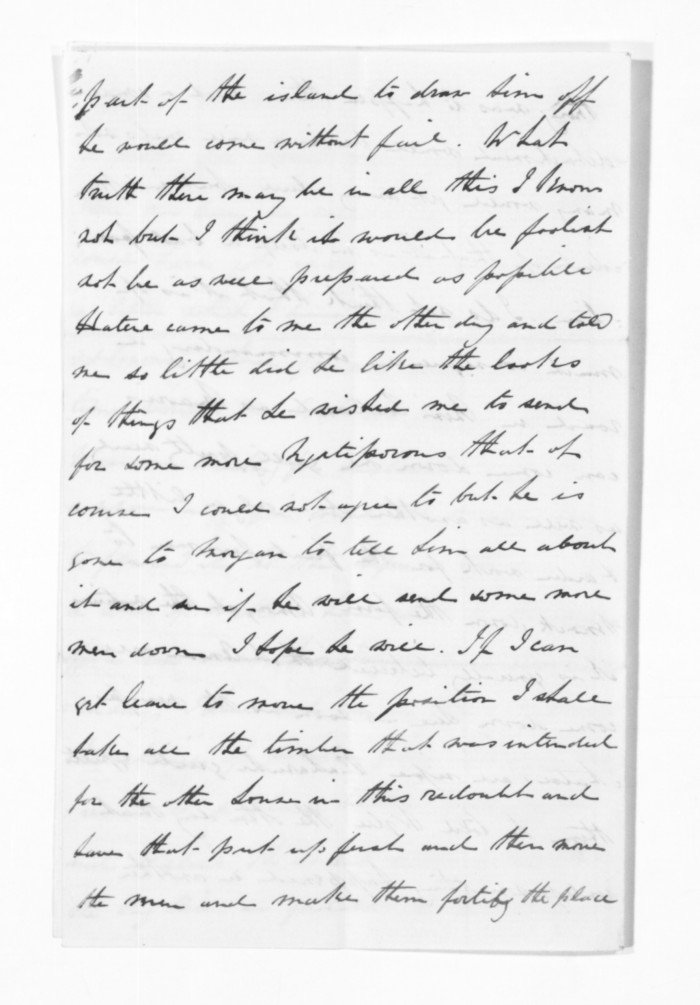 part of the island to draw him off
he would come without fail. What
truth there may be in all this I know
not but I think it would be foolish
not be as well prepared as possible
Hatene came to me the other day and told
me so little did he like the looks
of things that he wished me to send
for some more Ngatiporous that of
course I could not agree to but he is
gone to Morgan to tell him all about
it and see if he will send some more
men down I hope he will. If I can
get leave to move the position I shall
take all the timber that was intended
for the other house in this redoubt and
have that put up first and then move
the men and make them fortify the place